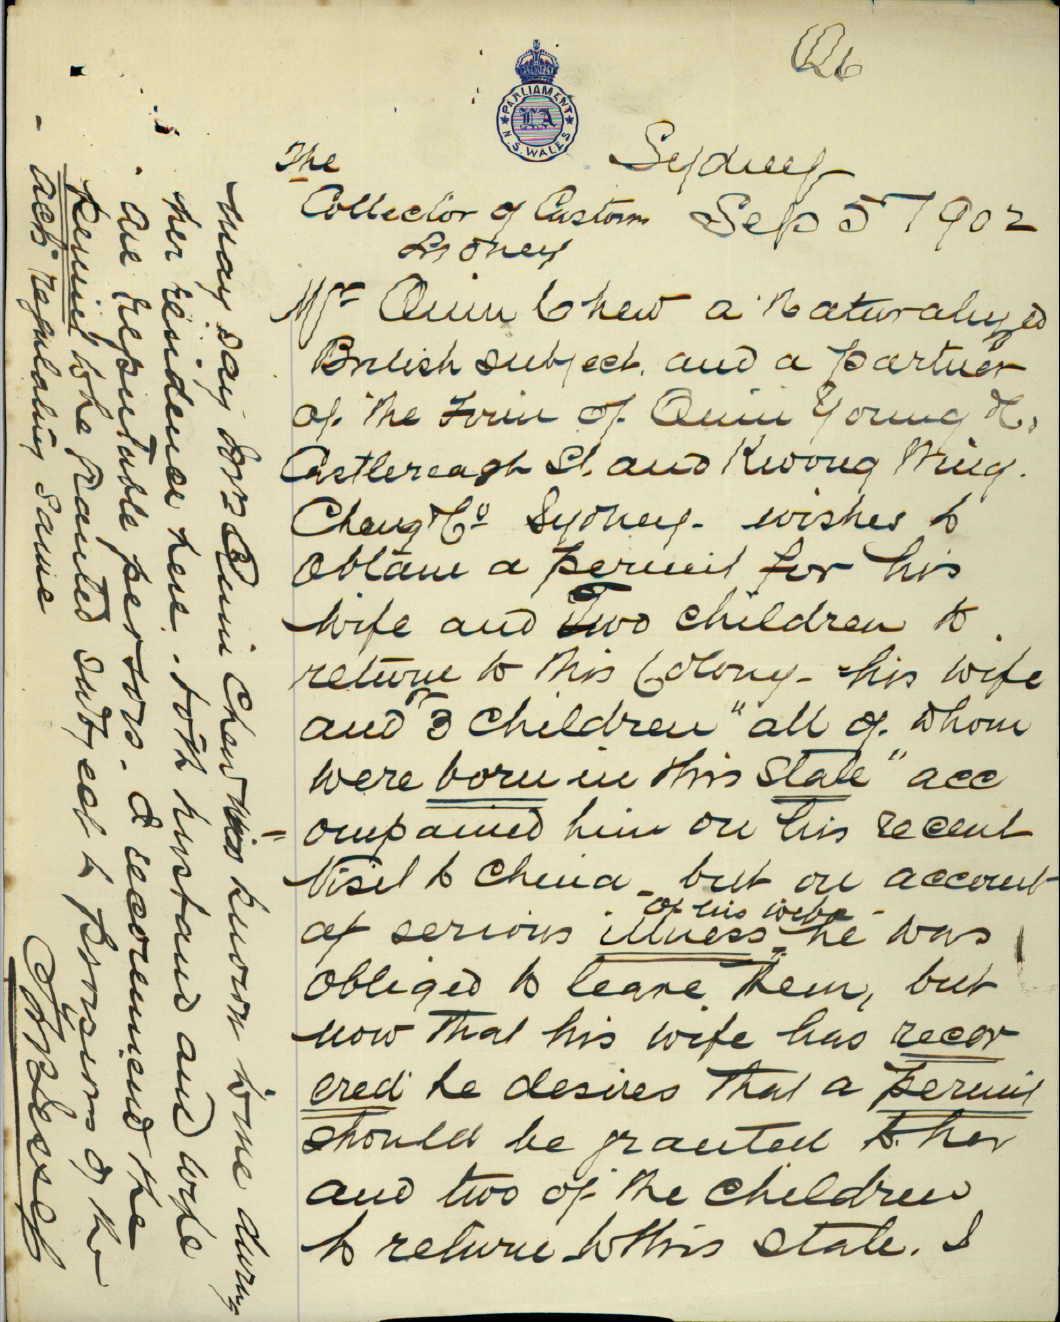 PARLIAMENT
LA
N.S.WALES
The
Sydney
Collector of Customs
Sep 5th 1902
Sydney
Mr Quin Chew a Naturalized
British subject, and a partner
of the Firm of Quin Young & Co,
Castlereagh St. and Kwong Wing.
Chang & Co Sydney - wishes to
obtain a permit for his
wife and Two children to
return to this Colony - his wife
and "3 children" all of whom
were born in this State" acc
ompanied him on his recent
visit to China - but on account
of his wife -
of serious illness he was
obliged to leave them, but
now that his wife has recov
ered he desires that a permit
should be granted to her
and two of the children
to return to this State. I
may say Mrs Quin Chew was known to me during
her residence here. both husband and wife
are reputable persons. I recommend the
permit to be granted subject to provisions of the
act regulating same